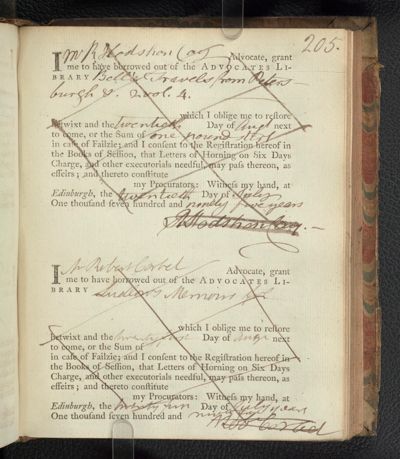 205.
I Mr R Hodshon Cay Advocate, grant
me to have borrowed out of the ADVOCATES LI-
BRARY Bell's Travels from Peters
burgh &c. 2 vol. 4.
which I oblige me to restore
betwixt and the twentieth Day of next
to come, or the Sum of one pound
in case of Failzie; and I consent to the Registration hereof in
the Books of Session, that Letters of Horning on Six Days
Charge, and other executorials needful, may pass thereon, as
effeirs; and thereto constitute
my Procurators: Witness my hand, at
Edinburgh, the twentieth Day of
One thousand seven hundred and ninety five years
R Hodshon Cay.
I Mr Robert Corbet Advocate, grant
me to have borrowed out of the ADVOCATES LI-
BRARY Ludlow's Memoirs
which I oblige me to restore
betwixt and the Day of next
to come, or the Sum of
in case of Failzie; and I consent to the Registration hereof in
the Books of Session, that Letters of Horning on Six Days
Charge, and other executorials needful, may pass thereon, as
effeirs; and thereto constitute
my Procurators: Witness my hand, at
Edinburgh, the Day of
One thousand seven hundred and
Corbet